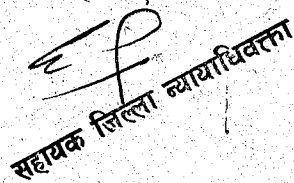 सहायक जिल्ला न्यायाधिवक्ता